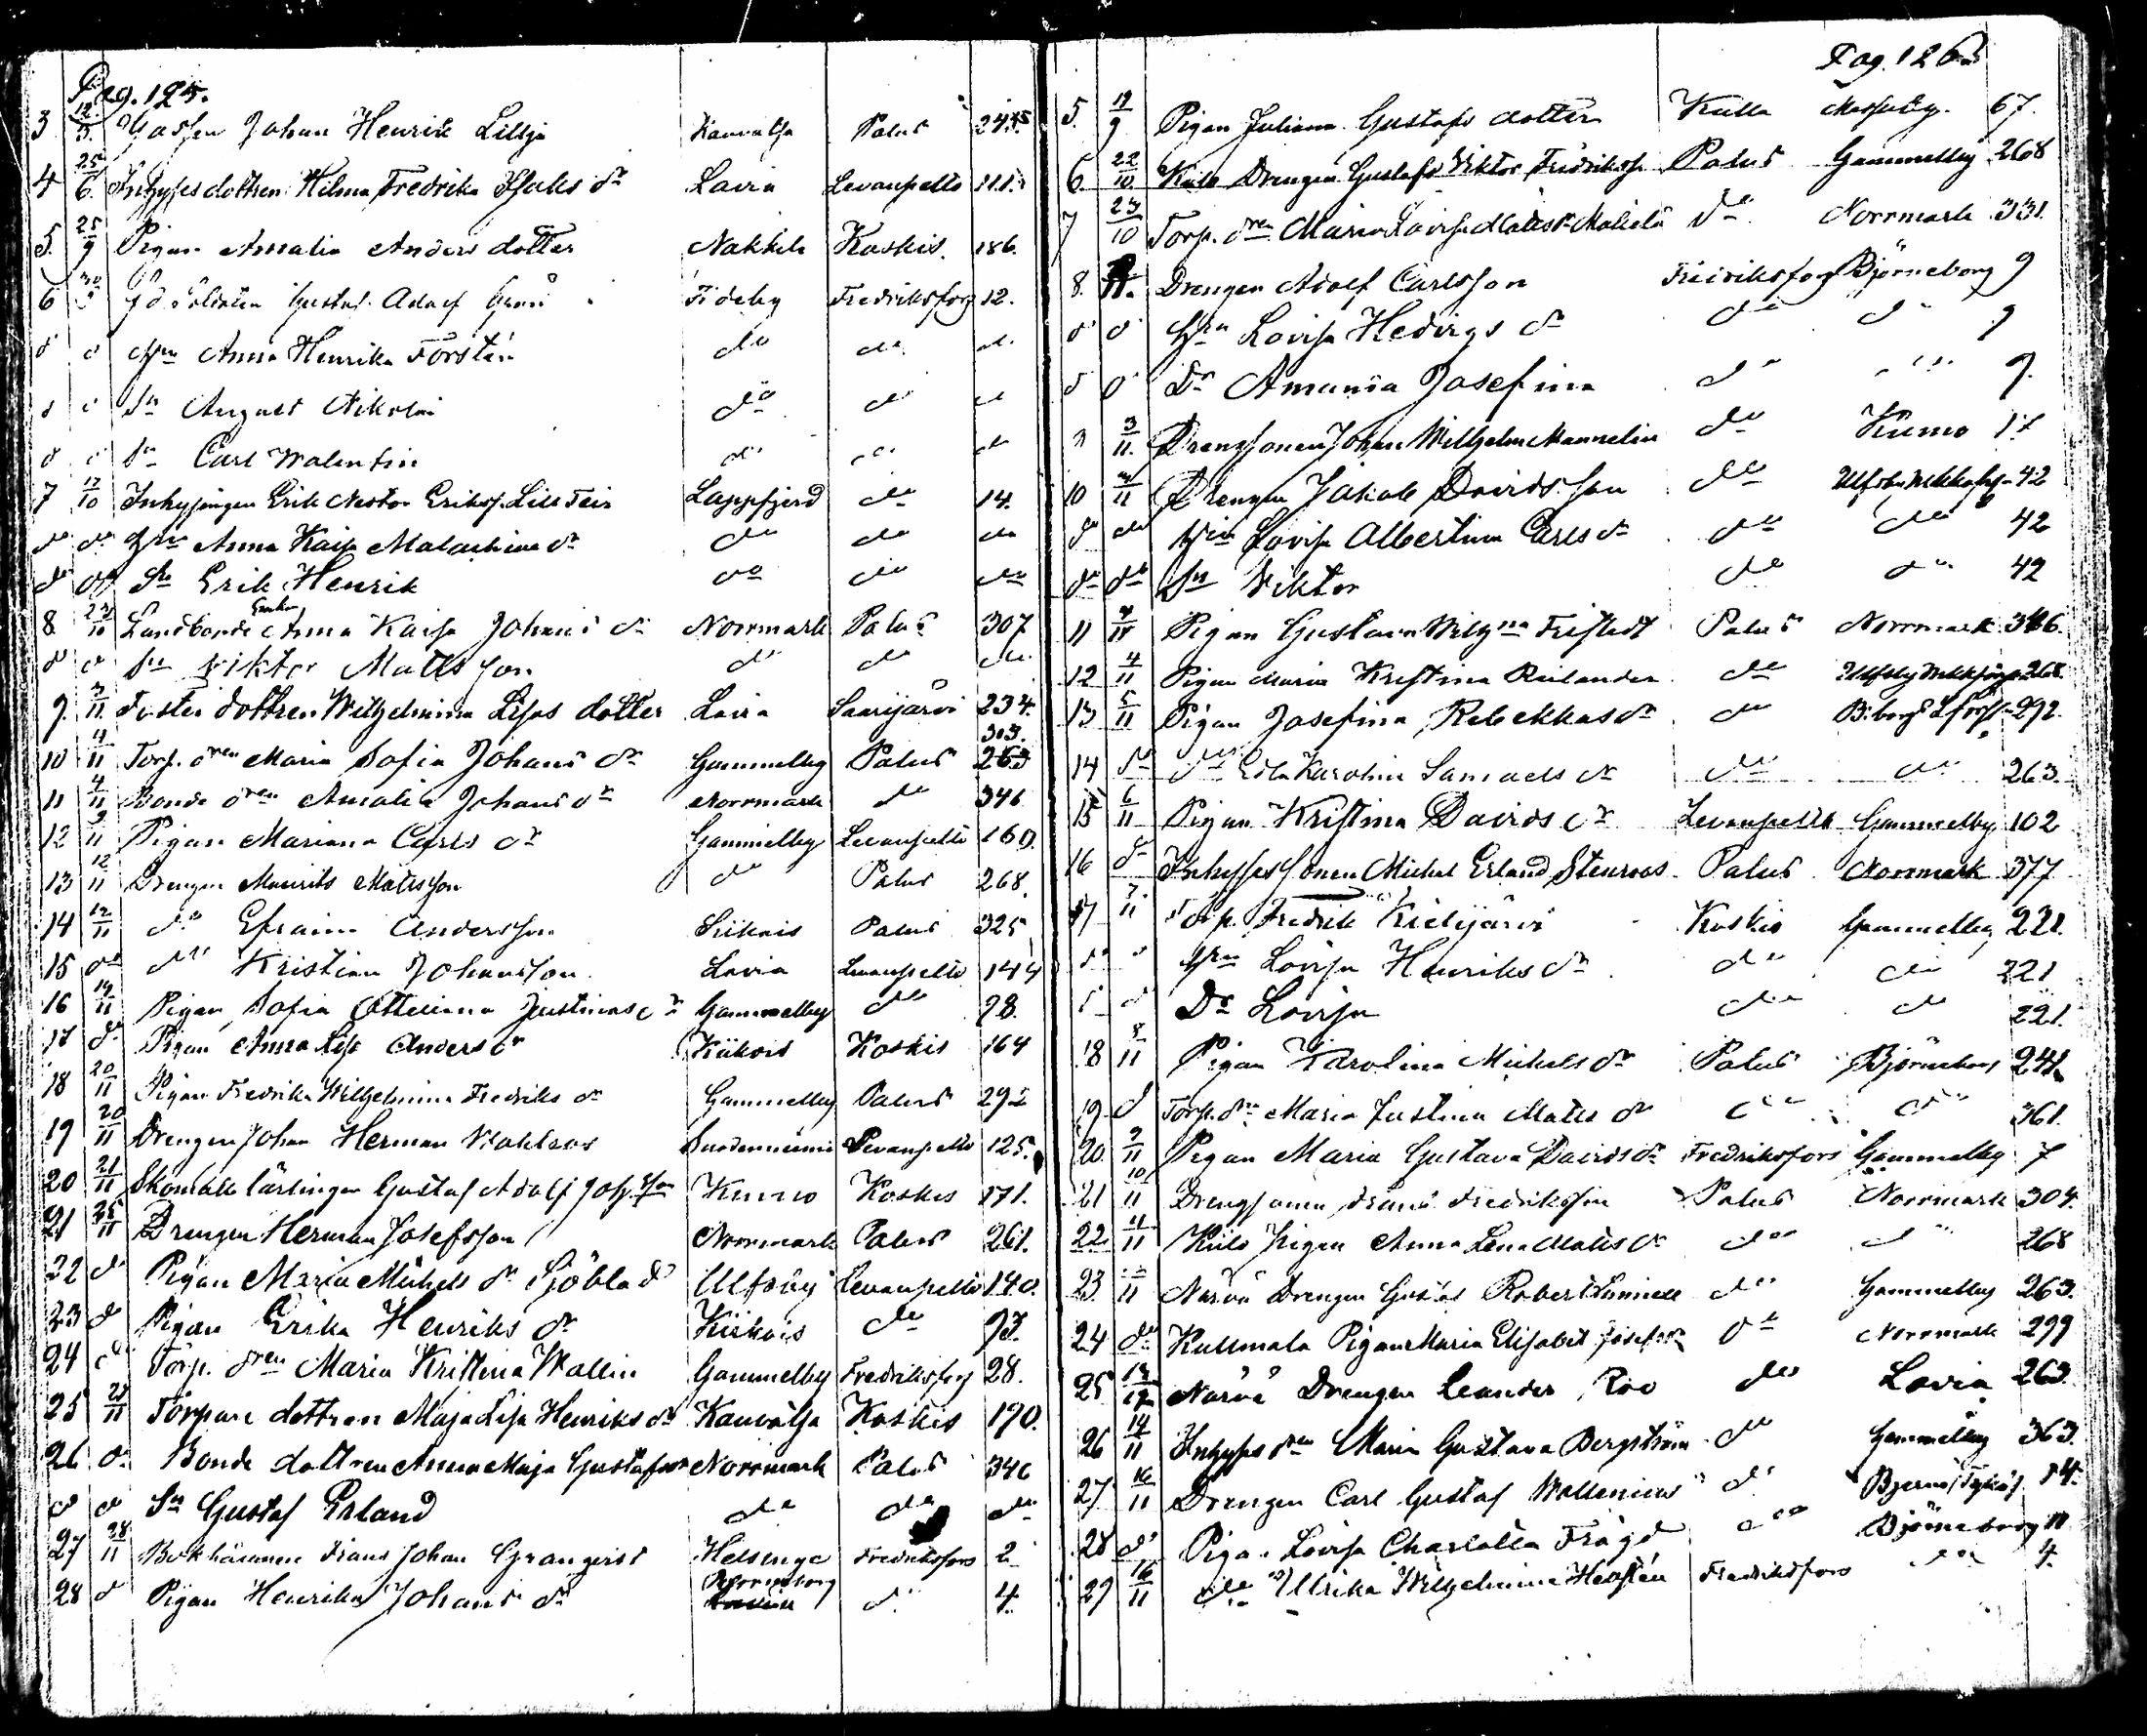 Pag. 125.
3 12/3. Johan Henrik Lillja Kauvatsa Palus
4 25/6. Inhyses dottren Hilma Fredrika Isaks dr Lavia Levanpelto 111.
5. 25/9 Pigan Amalia Anders dotter Nakkila Koskis. 186.
6 Soldaten Gustaf Adolf Fredriksfors 12.
d d Hn Anna Henrika Forstén do do do
d d Sn August Nikolai do do do
d d Sn Carl Walentin do do do
7 12/10 Inhysingen Erik Nestor Eriks. Lill Teir Lappfjerd do 14.
do do Hru Anna Kaisa dr do do do
do do Sn Erik Henrik do do do
8 23/10 Landbonde Enkan Anna Kaisa Johans dr Norrmark Palus 307
d d Sn Viktor Matts son do do do
9. 3/11. Foster dottren Wilhelmina Lisas dotter Lavia Saarijärvi 234.
303.
10 4/11 Torp. dren Maria Sofia Johans dr Gammelby Palus 263
11 4/11 Bonde dren Amalia Johans dr Norrmark do 346
12 9/11 Pigan Mariana Carls dr Gammelby Levanpelto 160.
13 12/11 Drengen Maurits Matsson do Palus 268.
14 12/11 do Efraim Andersson Kiikois Palus 325
15 do do Kristian Johansson Lavia Levanpelto 144
16 14/11 Pigan Sofia Ottiliana Justinas dr Gammelby do 98.
17 do Pigan Anna Lisa Anders dr Kiikois Koskis 164
18 20/11 Pigan Fredrika Wilhelmina Fredriks dr Gammelby Palus 292
19 20/11 Drengen Johan Herman Suodenniemi Levanpelto 125.
20 21/11 Skomak. lärlingen Gustaf Adolf Joh. son Kumo Koskis 171.
21 25/11 Drengen Herman Josefsson Norrmark Palus 261.
22 do Pigan Maria Mickels dr Sjöblad Ulfsby Levanpelto 140.
23 do Pigan Erika Henriks dr Kiikois do 97.
24 do Torp. dren Maria Kristina Wallin Gammelby Fredriksfors 28.
25 27/11 Torpare dottren Maja Lisa Henriks dr Kauvatsa Koskis 190.
26 do Bonde dottren Anna Maja Gustafs dr Norrmark Palus 346
d d Sn Gustaf Erland do do do
27 28/11 Bokhållaren Frans Johan Granqvist Helsinge Fredriksfors 2
28 d Pigan Henrika Johans dr Björneborg do 4.
Pag. 126
5. 19/9 Pigan Juliana Gustafs dotter Kulla 67.
6. 22/10 Drengen Gustaf Viktor Fredriksson Palus Gammelby 268
7 23/10 Torp. dren Maria Lovisa Matts dr do Norrmark 331.
8. Drengen Adolf Carlsson Fredriksfors Björneborg 9
d d Hru Lovisa Hedvigs dr do do 9
d d Dr Amanda Josefina do do 9.
9 3/11. Drengsonen Johan Wilhelm Mannelin do Kumo 17
10 3/11 Drengen Jakob Davidsson do Ulfsby 42
do do Hru Lovisa Albertina Carls dr do do 42
do do Sn Viktor do do 42
11 4/11 Pigan Gustava Wilhna Fristedt Palus Norrmark 346.
12 4/11 Pigan Maria Kristina Reilander do Ulfsby 268.
13 5/11 Pigan Josefina Rebekkas dr do B:borgs 292.
14 do do Karolina Samuels dr do do 263.
15 6/11 Pigan Kristina Davids dr Levanpelto Gammelby 102
16 do Inhyses sonen Mickel Erland Stenroos Palus Norrmark 377
17 7/11 Torp. Fredrik Koskis Gammelby 221.
do d Hru Lovisa Henriks dr do do 221
d d Dr Lovisa do do 221.
18 8/11 Pigan Karolina Mickels dr Palus Björneborg 241.
19. d Torp. dr Maria Justina Matts dr do do 361.
20. 9/11 Pigan Maria Gustava Davids dr Fredriksfors Gammelby 7
21 10/11 Drengsonen Frans Fredriksson Palus Norrmark 304.
22 11/11 Pigan Anna Lena Matts dr do do 268
23. Drengen Gustaf Robert do Gammelby 263.
24 do Kullmala Pigan Maria Elisabet Josefs dr do Norrmark 299
25 Drengen Leander Roo do Lavia 263.
26 14/11 Inhyses dren Maria Gustava Bergström do Gammelby 363.
27. 16/11 Drengen Carl Gustaf Wallenius do 14.
28 do Pigan Lovisa Charlotta do Björneborg 11
29 16/11 do Ulrika Wilhelmina Fredriksfors do 4.